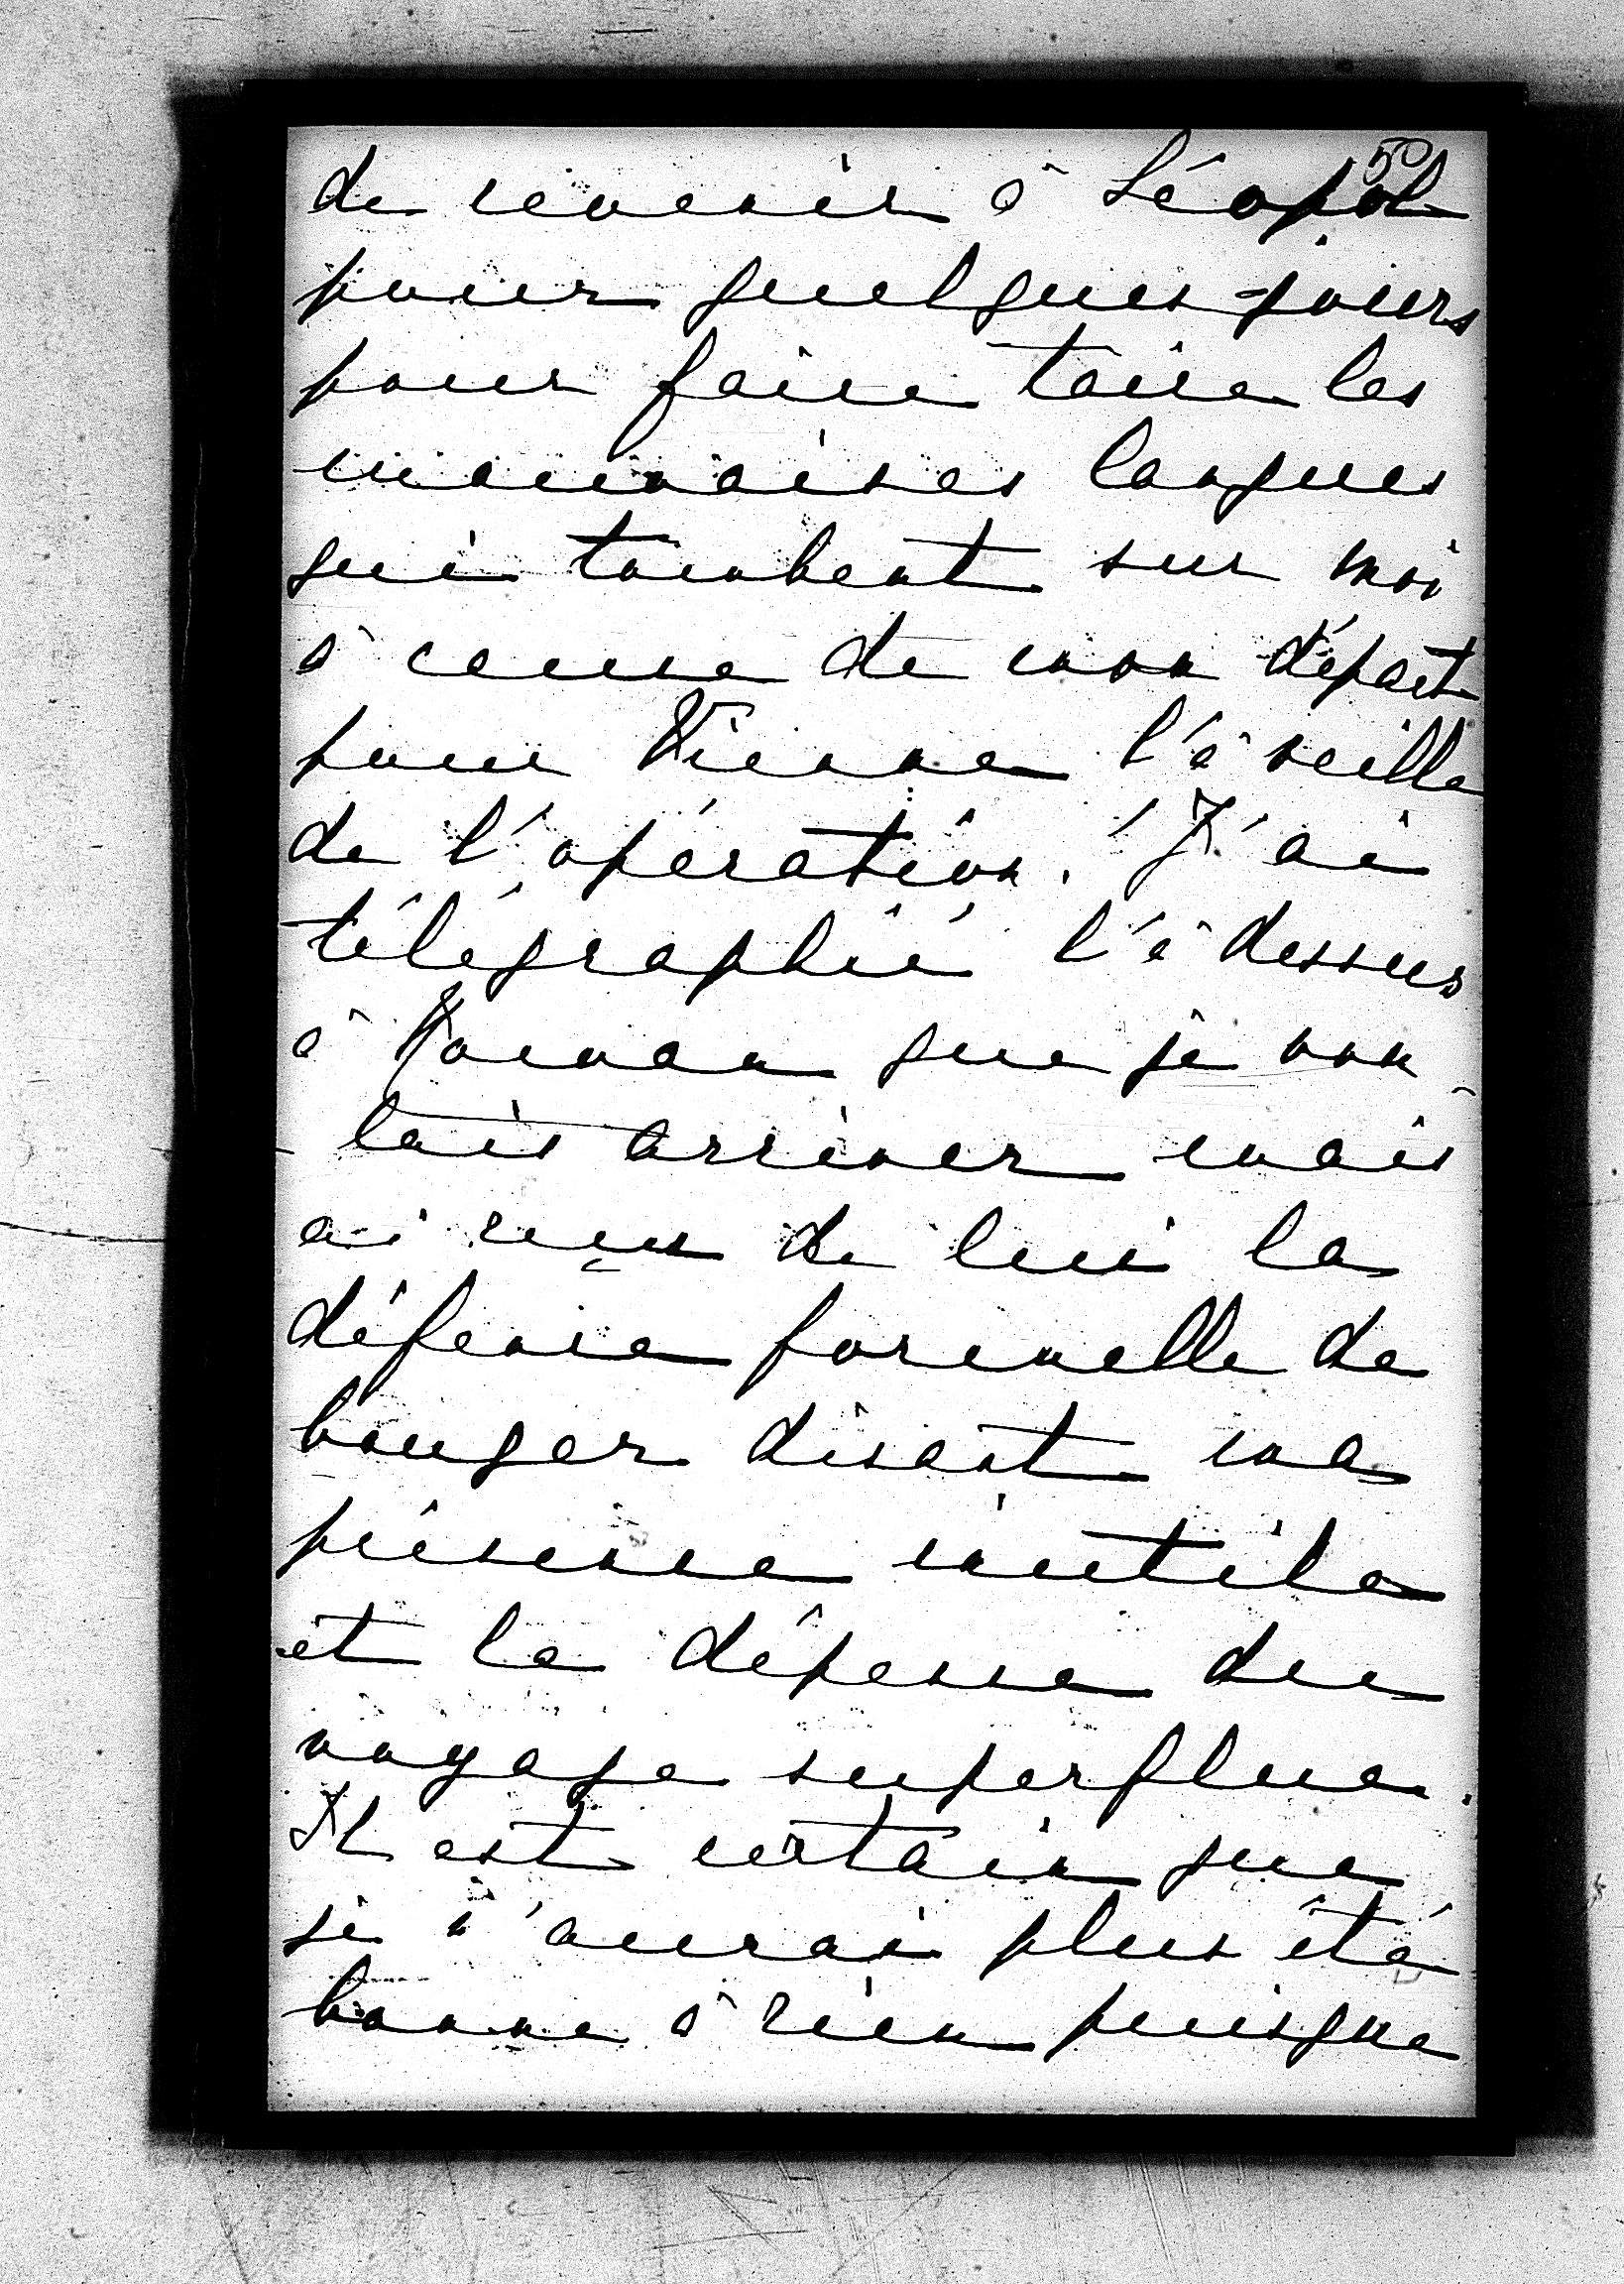 50
de revenir à Léopol
pour quelques jours
pour faire taire les
mauvaises langues
qui tombent sur moi
à cause de mon départ
pour Vienne l'à veille
de l'opération. J'ai
télégraphié l'à dessus
à que je vou-
lais arriver mais
ai reçu de lui la
défense formelle de
bouger disant ma
présence inutile
et la dépense du
voyage superflue.
Il est certain que
je n'aurai plus été
bonne à rien puisque